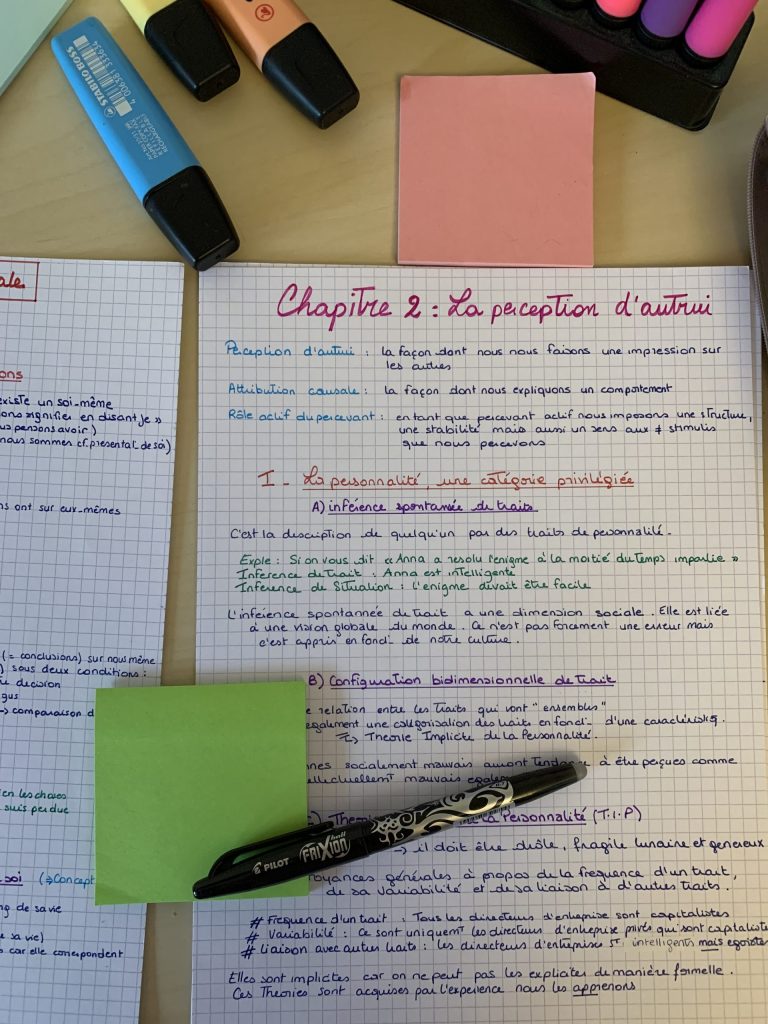 STABILO BOSS
4 00638 333634
ale
ons
existe un soi-même
ons signifier en disant je »
us pensons avoir)
nous sommes cf. presentat de soi)
ns ont sur eux-mêmes
(= conclusions) sur nous même
) sous deux conditions :
decision
gus
-> comparaison d
en les choses
suis perdue
soi (⇒Concept
ng de sa vie
e sa vie)
s car elle correspondent
Chapitre 2 : La perception d'autrui
Perception d'autrui : la façon dont nous nous faisons une impression sur
les autres
Attribution causale : la façon dont nous expliquons un comportement
Rôle actif du percevant : en tant que percevant actif nous imposons une structure,
une stabilité mais aussi un sens aux ≠ stimulis
que nous percevons
I - La personnalité, une catégorie privilégiée
A) inférence spontanée de traits
C'est la description de quelqu'un par des traits de personnalité.
Exple : Si on vous dit « Anna a resolu l'enigme à la moitié du temps impartie »
Inference de trait : Anna est intelligente
Inference de Situation : l'enigme devait être facile
L'inférence spontannée de trait a une dimension sociale. Elle est liée
à une vision globale du monde. Ce n'est pas forcement une erreur mais
c'est appris en fonct° de notre culture.
B) Configuration bidimensionnelle de trait
e relation entre les traits qui vont "ensembles"
egalement une catégorisation des traits en fonct° d'une caractéristiq.
↳ Théorie Implicite de la Personnalité.
nnes socialement mauvais auront tendance à être perçues comme
ellectuellement mauvais
Theo la Personnalité (T.I.P)
-> il doit être drôle, fragile lunaire et genereux
oyances générales à propos de la frequence d'un trait,
de sa variabilité et de sa liaison à d'autres traits.
# Frequence d'un trait : Tous les directeurs d'entreprise sont capitalistes
# Variabilité : Ce sont uniquement les directeurs d'entreprise privés qui sont capitalistes
# Liaison avec autres traits : les directeurs d'entreprises st intelligents mais egoistes
Elles sont implicites car on ne peut pas les expliciter de manière formelle.
Ces Theories sont acquises par l'experience nous les apprenons
PILOT FRIXION ball